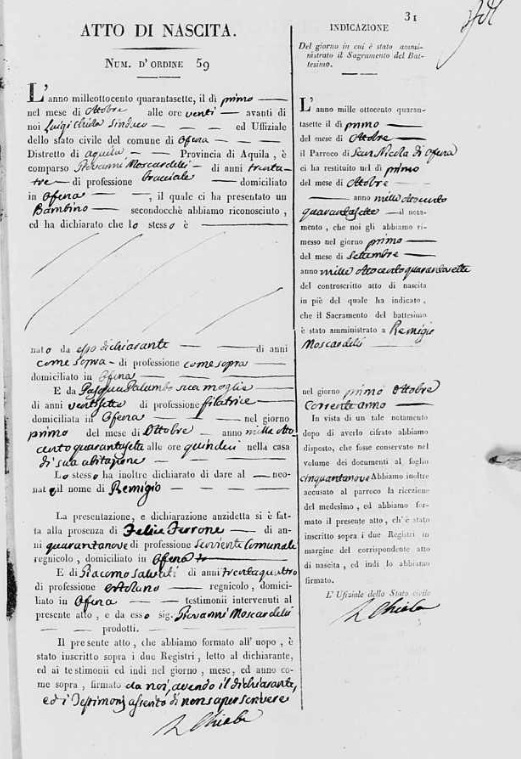 31
ATTO DI NASCITA.
NUM. D'ORDINE 59
L'anno milleottocento quarantasette, il dì primo
nel mese di Ottobre alle ore venti avanti di
noi Luigi Chiola Sindaco ed Uffiziale
dello stato civile del comune di Ofena
Distretto di aquila Provincia di Aquila, è
comparso Giovanni Moscardelli di anni trenta
tre di professione bracciale domiciliato
in Ofena, il quale ci ha presentato un
Bambino secondocchè abbiamo riconosciuto,
ed ha dichiarato che lo stesso è
nato da esso dichiarante di anni
come sopra di professione come sopra
domiciliato in Ofena
E da Pasqua Palumbo sua moglie
di anni ventisette di professione filatrice
domiciliata in Ofena nel giorno
primo del mese di Ottobre anno mille otto
cento quarantasette alle ore quindici nella casa
di sua abitazione
Lo stesso ha inoltre dichiarato di dare al neo-
nato il nome di Remigio
La presentazione, e dichiarazione anzidetta si è fat-
ta alla presenza di Felice Ferrone di an-
ni quarantanove di professione serviente comunale
regnicolo, domiciliato in Ofena
E di Giacomo Salvati di anni trentaquattro
di professione ortolano regnicolo, domici-
liato in Ofena testimonii intervenuti al
presente atto, e da esso sig. Giovanni Moscardelli
prodotti.
Il presente atto, che abbiamo formato all'uopo, è
stato inscritto sopra i due Registri, letto al dichiarante,
ed ai testimonii ed indi nel giorno, mese, ed anno co-
me sopra, firmato da noi, avendo il dichiarante,
ed i Testimonj asserito di non saper scrivere
L Chiola
INDICAZIONE
Del giorno in cui è stato ammi-
nistrato il Sagramento del Bat-
tesimo.
L'anno mille ottocento quaran-
tasette il dì primo
del mese di Ottobre
il Parroco di San Nicola di Ofena
ci ha restituito nel dì primo
del mese di Ottobre
anno mille ottocento
quarantasette il nota-
mento, che noi gli abbiamo ri-
messo nel giorno primo
del mese di Settembre
anno mille ottocento quarantasette
del controscritto atto di nascita
in piè del quale ha indicato,
che il Sacramento del battesimo
è stato amministrato a Remigio
Moscardelli
nel giorno primo Ottobre
Corrente anno
In vista di un tale notamento
dopo di averlo cifrato abbiamo
disposto, che fosse conservato nel
volume dei documenti al foglio
cinquantanove Abbiamo inoltre
accusato al parroco la ricezione
del medesimo, ed abbiamo for-
mato il presente atto, ch'è stato
inscritto sopra i due Registri in
margine del corrispondente atto
di nascita, ed indi lo abbiamo
firmato.
L'Uffiziale dello Stato civile
L Chiola